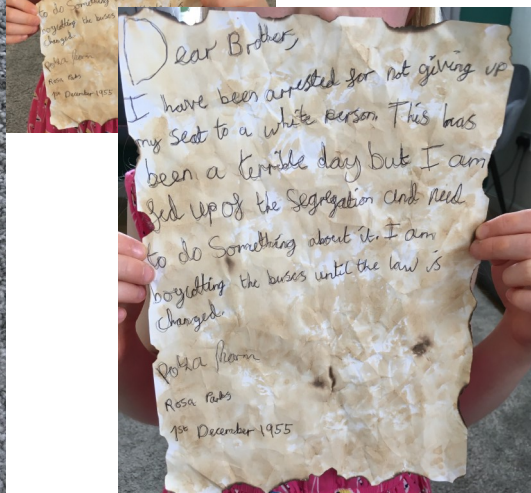 to do Something
boycotting the buses
changed.
Rosa Parks
1st December 1955
Dear Brother,
I have been arrested for not giving up
my Seat to a white person. This has
been a terrible day but I am
fed up of the Segregation and need
to do Something about it. I am
boycotting the buses until the law is
changed.
Rosa Parks
1st December 1955